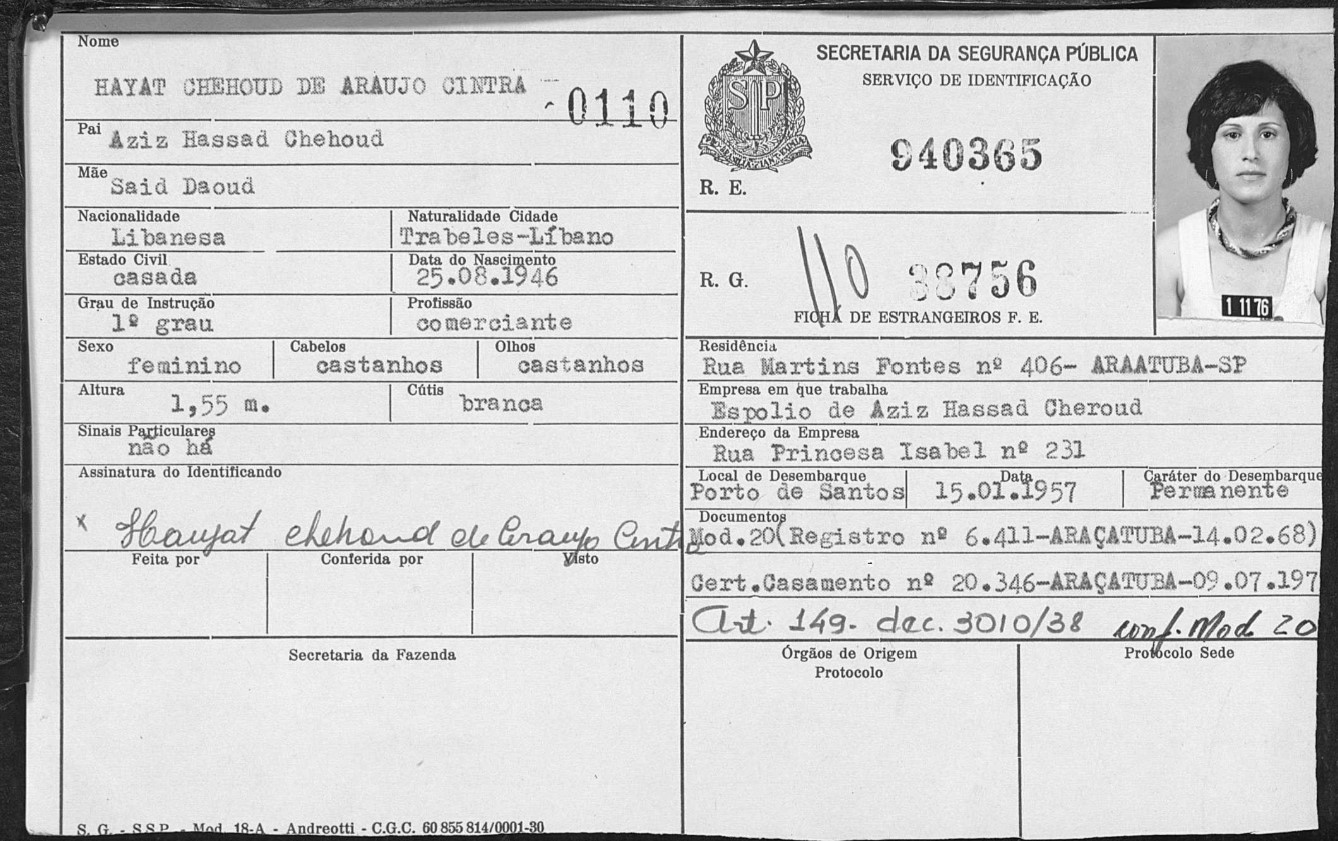 Nome
HAYAT CHEHOUD DE ARAUJO CINTRA
0110
Pai Aziz Hassad Chehoud
Mãe Said Daoud
Nacionalidade
Libanesa
Naturalidade Cidade
Trabeles-Líbano
Estado Civil
casada
Data do Nascimento
25.08.1946
Grau de Instrução
1º grau
Profissão
comerciante
Sexo
feminino
Cabelos
castanhos
Olhos
castanhos
Altura
1,55 m.
Cútis
branca
Sinais Particulares
não há
Assinatura do Identificando
x Hauyat chehoud de Araujo Cintra
Feita por
Conferida por
Visto
Secretaria da Fazenda
S. G. - S.S.P. - Mod. 18-A - Andreotti - C.G.C. 60 855 814/0001-30
SECRETARIA DA SEGURANÇA PÚBLICA
SERVIÇO DE IDENTIFICAÇÃO
SP
940365
R. E.
R. G.
110 38756
FICHA DE ESTRANGEIROS F. E.
1 11 76
Residência
Rua Martins Fontes nº 406- ARAATUBA-SP
Empresa em que trabalha
Espolio de Aziz Hassad Cheroud
Endereço da Empresa
Rua Princesa Isabel nº 231
Local de Desembarque
Porto de Santos
Data
15.01.1957
Caráter do Desembarque
Permanente
Documentos
Mod.20(Registro nº 6.411-ARAÇATUBA-14.02.68)
Cert.Casamento nº 20.346-ARAÇATUBA-09.07.197
Art. 149. dec. 3010/38 conf. Mod 20
Órgãos de Origem
Protocolo
Protocolo Sede